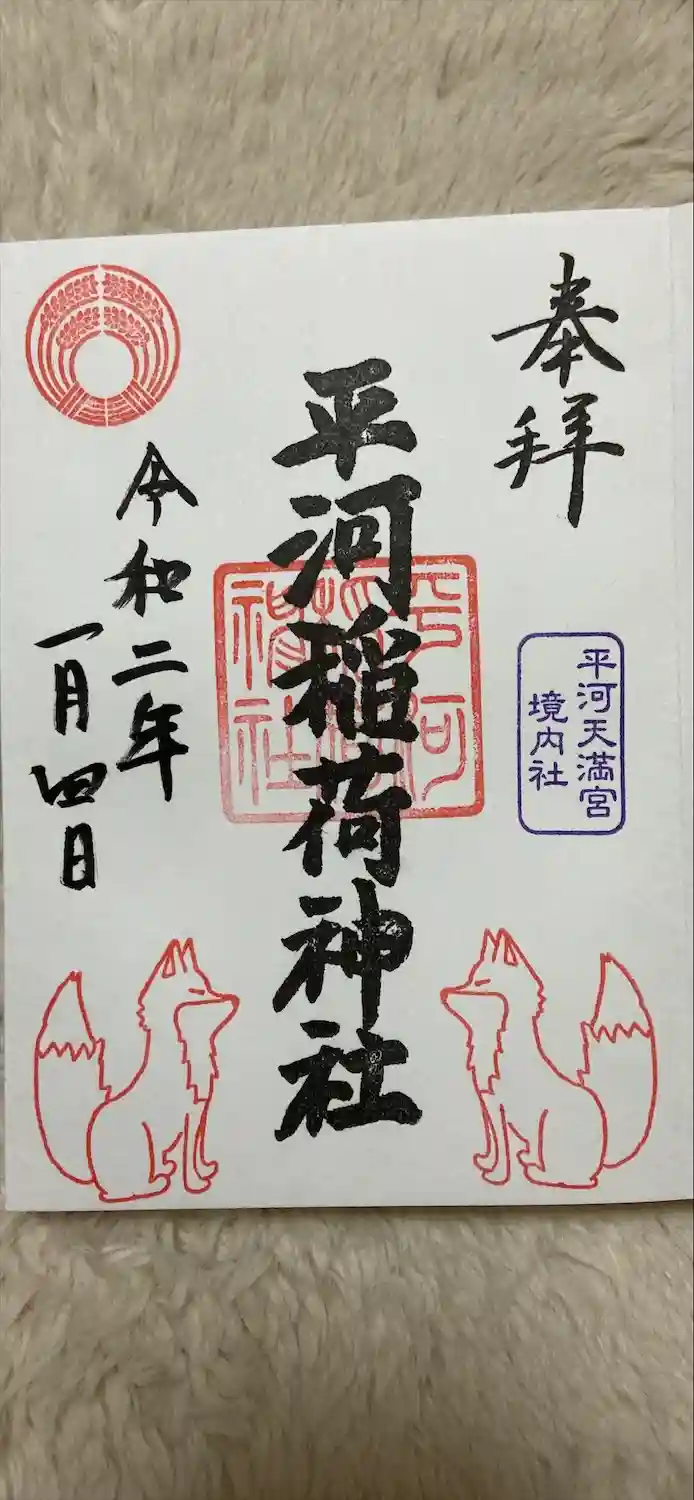 奉拝
平河天満宮
境内社
平河稲荷神社
平河
稲荷
神社
令和二年
一月四日